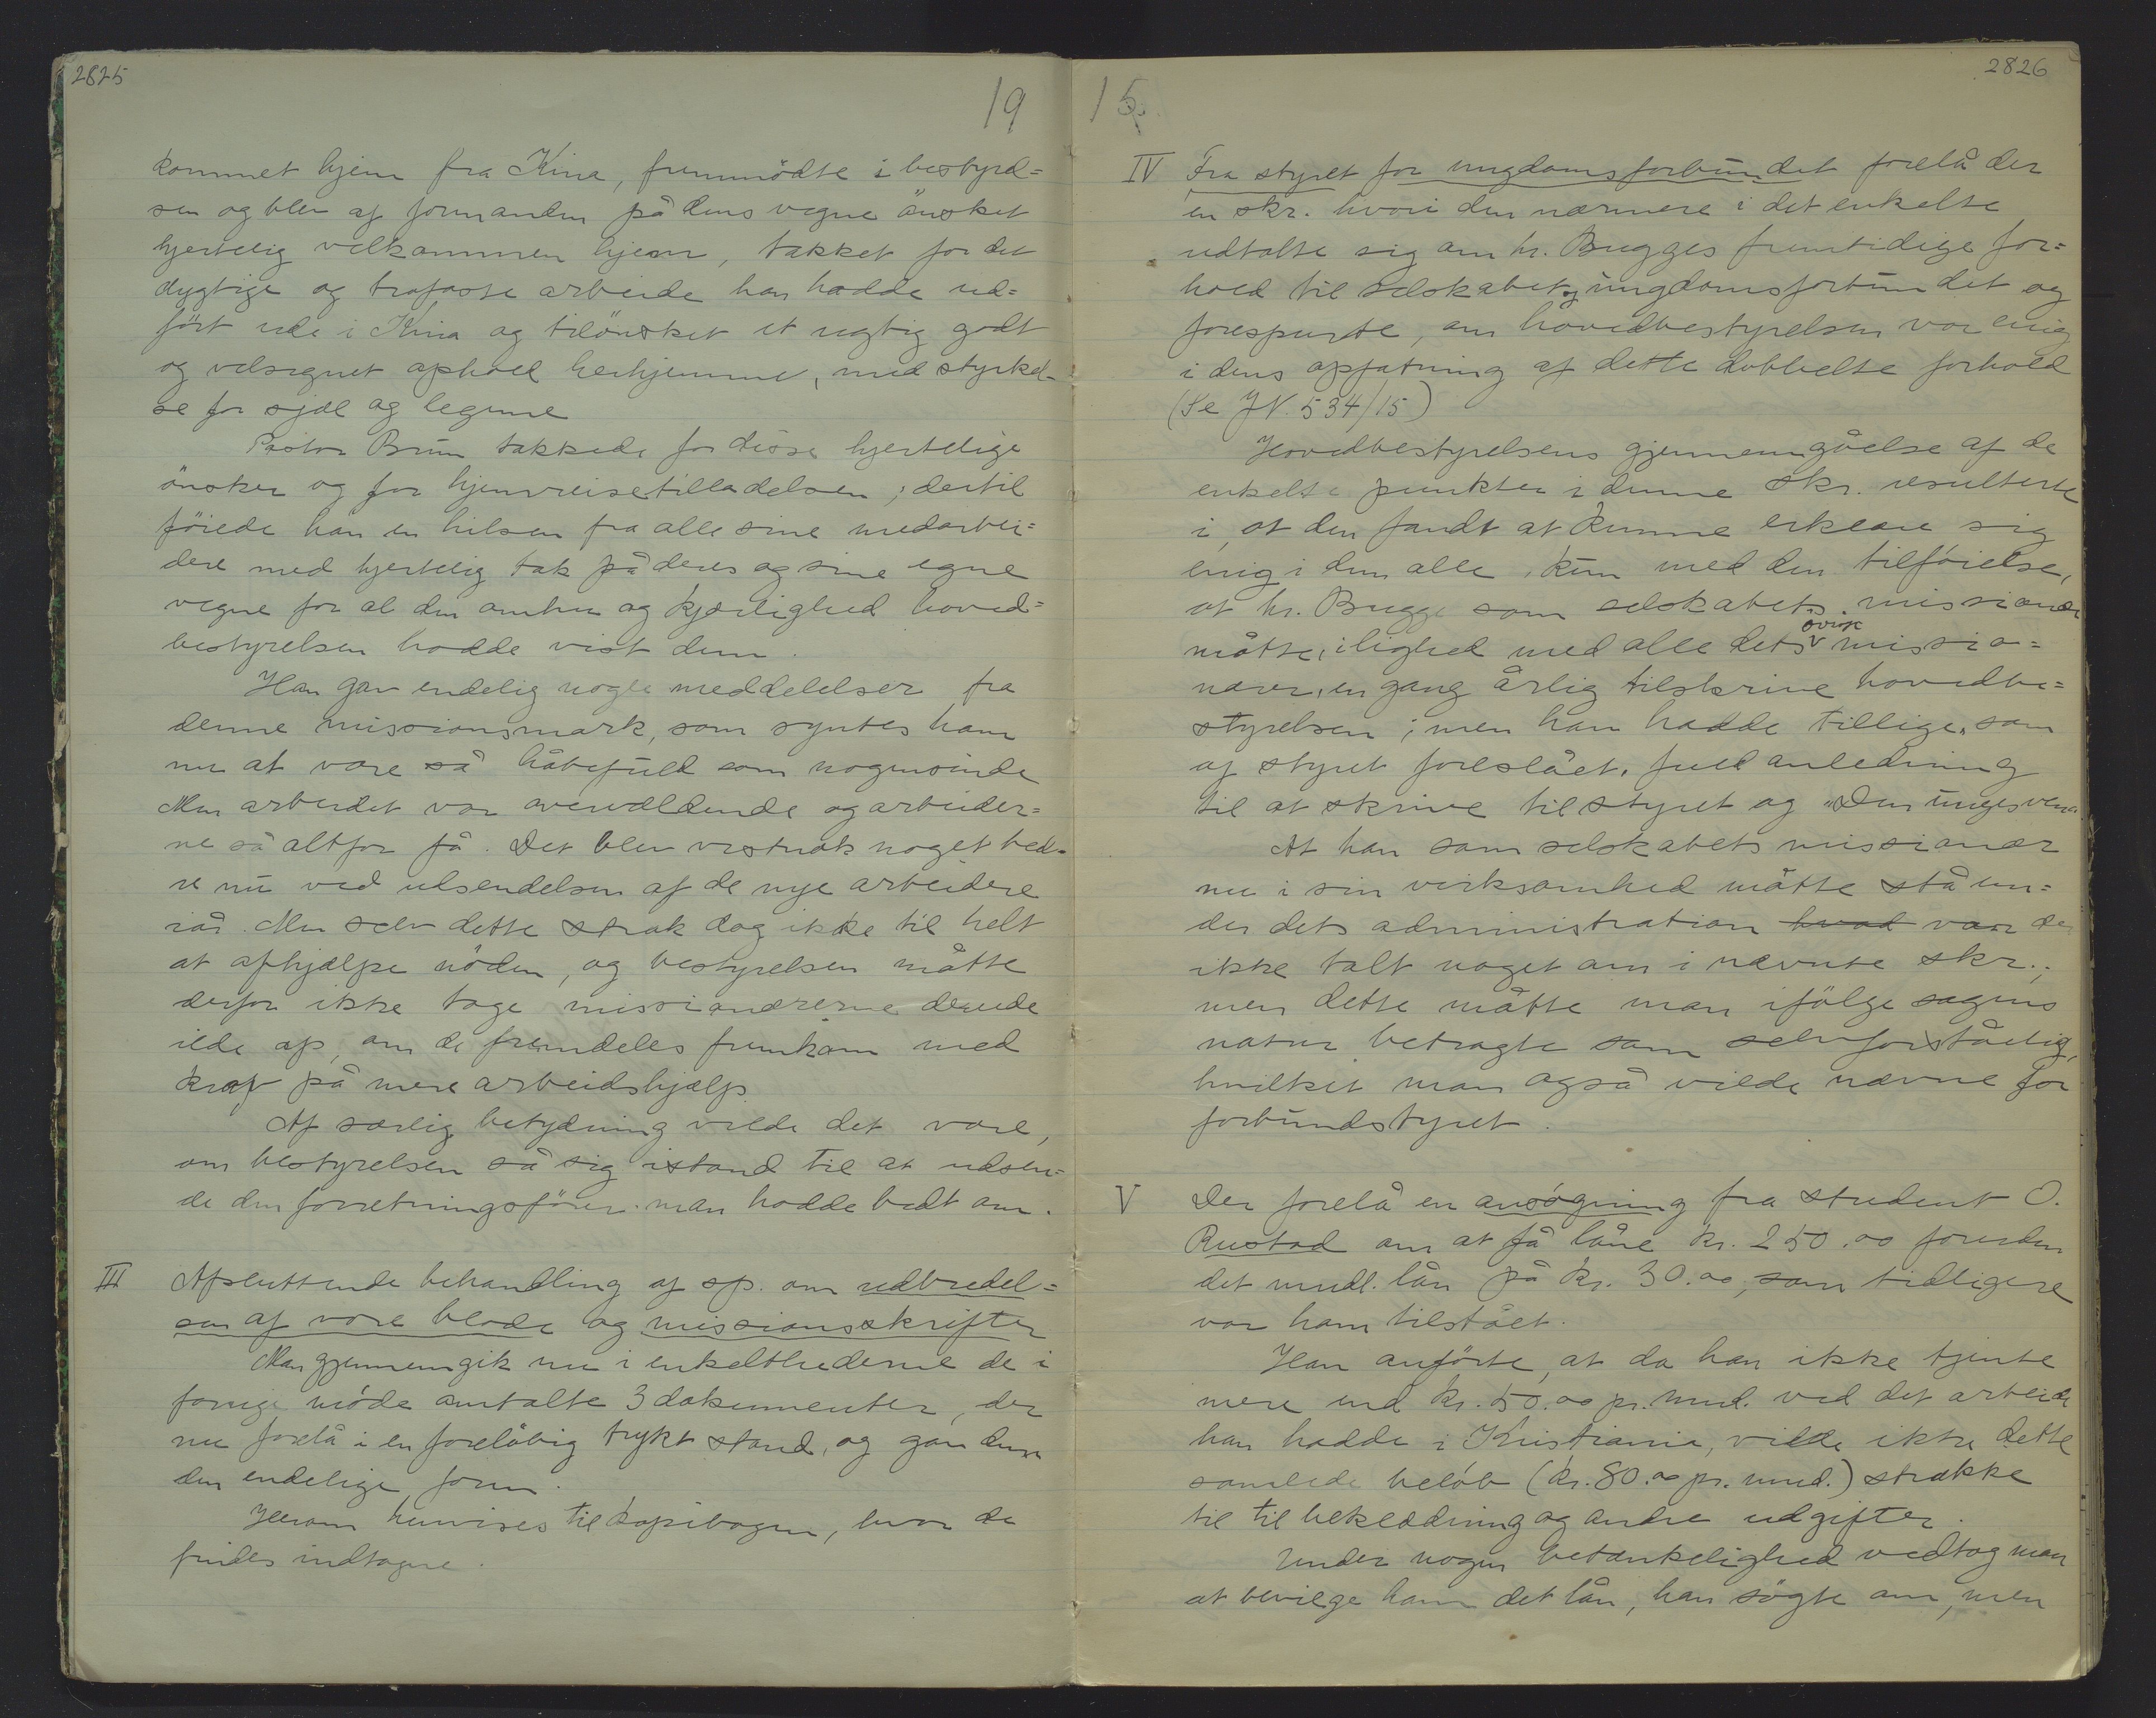 2825
19
kommet hjem fra Kina, fremmödte i bestyrel=
sen og blev af formanden på dens vegne önsket
hjertelig velkommen hjem, takket for det
dygtige og trofaste arbeide han hadde ud=
fört ude i Kina og tilönsket et rigtig godt
og velsignet ophold herhjemme, med styrkel-
se for sjæl og legeme
Pastor Brun takkede for disse hjertelige
önsker og for hjemreisetilladelsen; dertil
föiede han en hilsen fra alle sine medarbei=
dere med hjertelig tak på deres og sine egne
vegne for al den omhu og kjærlighed hoved=
bestyrelsen hadde vist dem.
Han gav endelig nogle meddelelser fra
denne missionsmark, som syntes ham
nu at være så håbefuld som nogensinde
Men arbeidet var overvældende og arbeider=
ne så altfor få. Det blev vistnok noget bed-
re nu ved udsendelsen af de nye arbeidere
iår. Men selv dette strak dog ikke til helt
at afhjælpe nöden, og bestyrelsen måtte
derfor ikke tage missionærerne derude
ilde op, om de fremdeles fremkom med
krav på mere arbeidshjælp.
Af særlig betydning vilde det være,
om bestyrelsen så sig istand til at udsen=
de den forretningsförer man hadde bedt om.
III Afsluttende behandling af sp. om udbredel=
sen af vore blade og missionsskrifter
Man gjennemgik nu i enkelthederne de i
forrige möde omtalte 3 dokumenter, der
nu forelå i en forelöbig trykt stand, og gav dem
den endelige form.
Herom henvises til kopibogen, hvor de
findes indtagne.
2826
15
IV Fra styret for ungdomsforbundet forelå der
en skr. hvori den nærmere i det enkelte
udtalte sig om hr. Bugges fremtidige for=
hold til selskabet og ungdomsforbundet og
forespurte, om hovedbestyrelsen var enig
i dens opfatning af dette dobbelte forhold
(Se JN. 534/15)
Hovedbestyrelsens gjennemgåelse af de
enkelte punkter i denne skr. resulterte
i, at den fandt at kunne erklære sig
enig i dem alle, kun med den tilföielse,
at hr. Bugge som selskabets missionær
måtte, i lighed med alle dets övrige missio=
nærer, en gang årlig tilskrive hovedbe=
styrelsen; men han hadde tillige, som
af styret foreslået, fuld anledning
til at skrive til styret og "Den unges ven"
At han som selskabets missionær
nu i sin virksomhed måtte stå un=
der dets administration hvad var der
ikke talt noget om i nævnte skr.;
men dette måtte man ifölge sagens
natur betragte som selvforståelig,
hvilket man også vilde nævne for
forbundstyret.
V Der forelå en ansögning fra student O.
Rustad om at få låne kr. 250.00 foruden
det mndl. lån på kr. 30.00, som tidligere
var ham tilstået.
Han anförte, at da han ikke tjente
mere end kr. 50.00 pr. mnd. ved det arbeide
han hadde i Kristiania, vilde ikke dette
samlede belöb (kr. 80.00 pr. mnd.) strække
til til beklædning og andre udgifter.
Under nogen betænkelighed vedtog man
at bevilge ham det lån, han sögte om, men